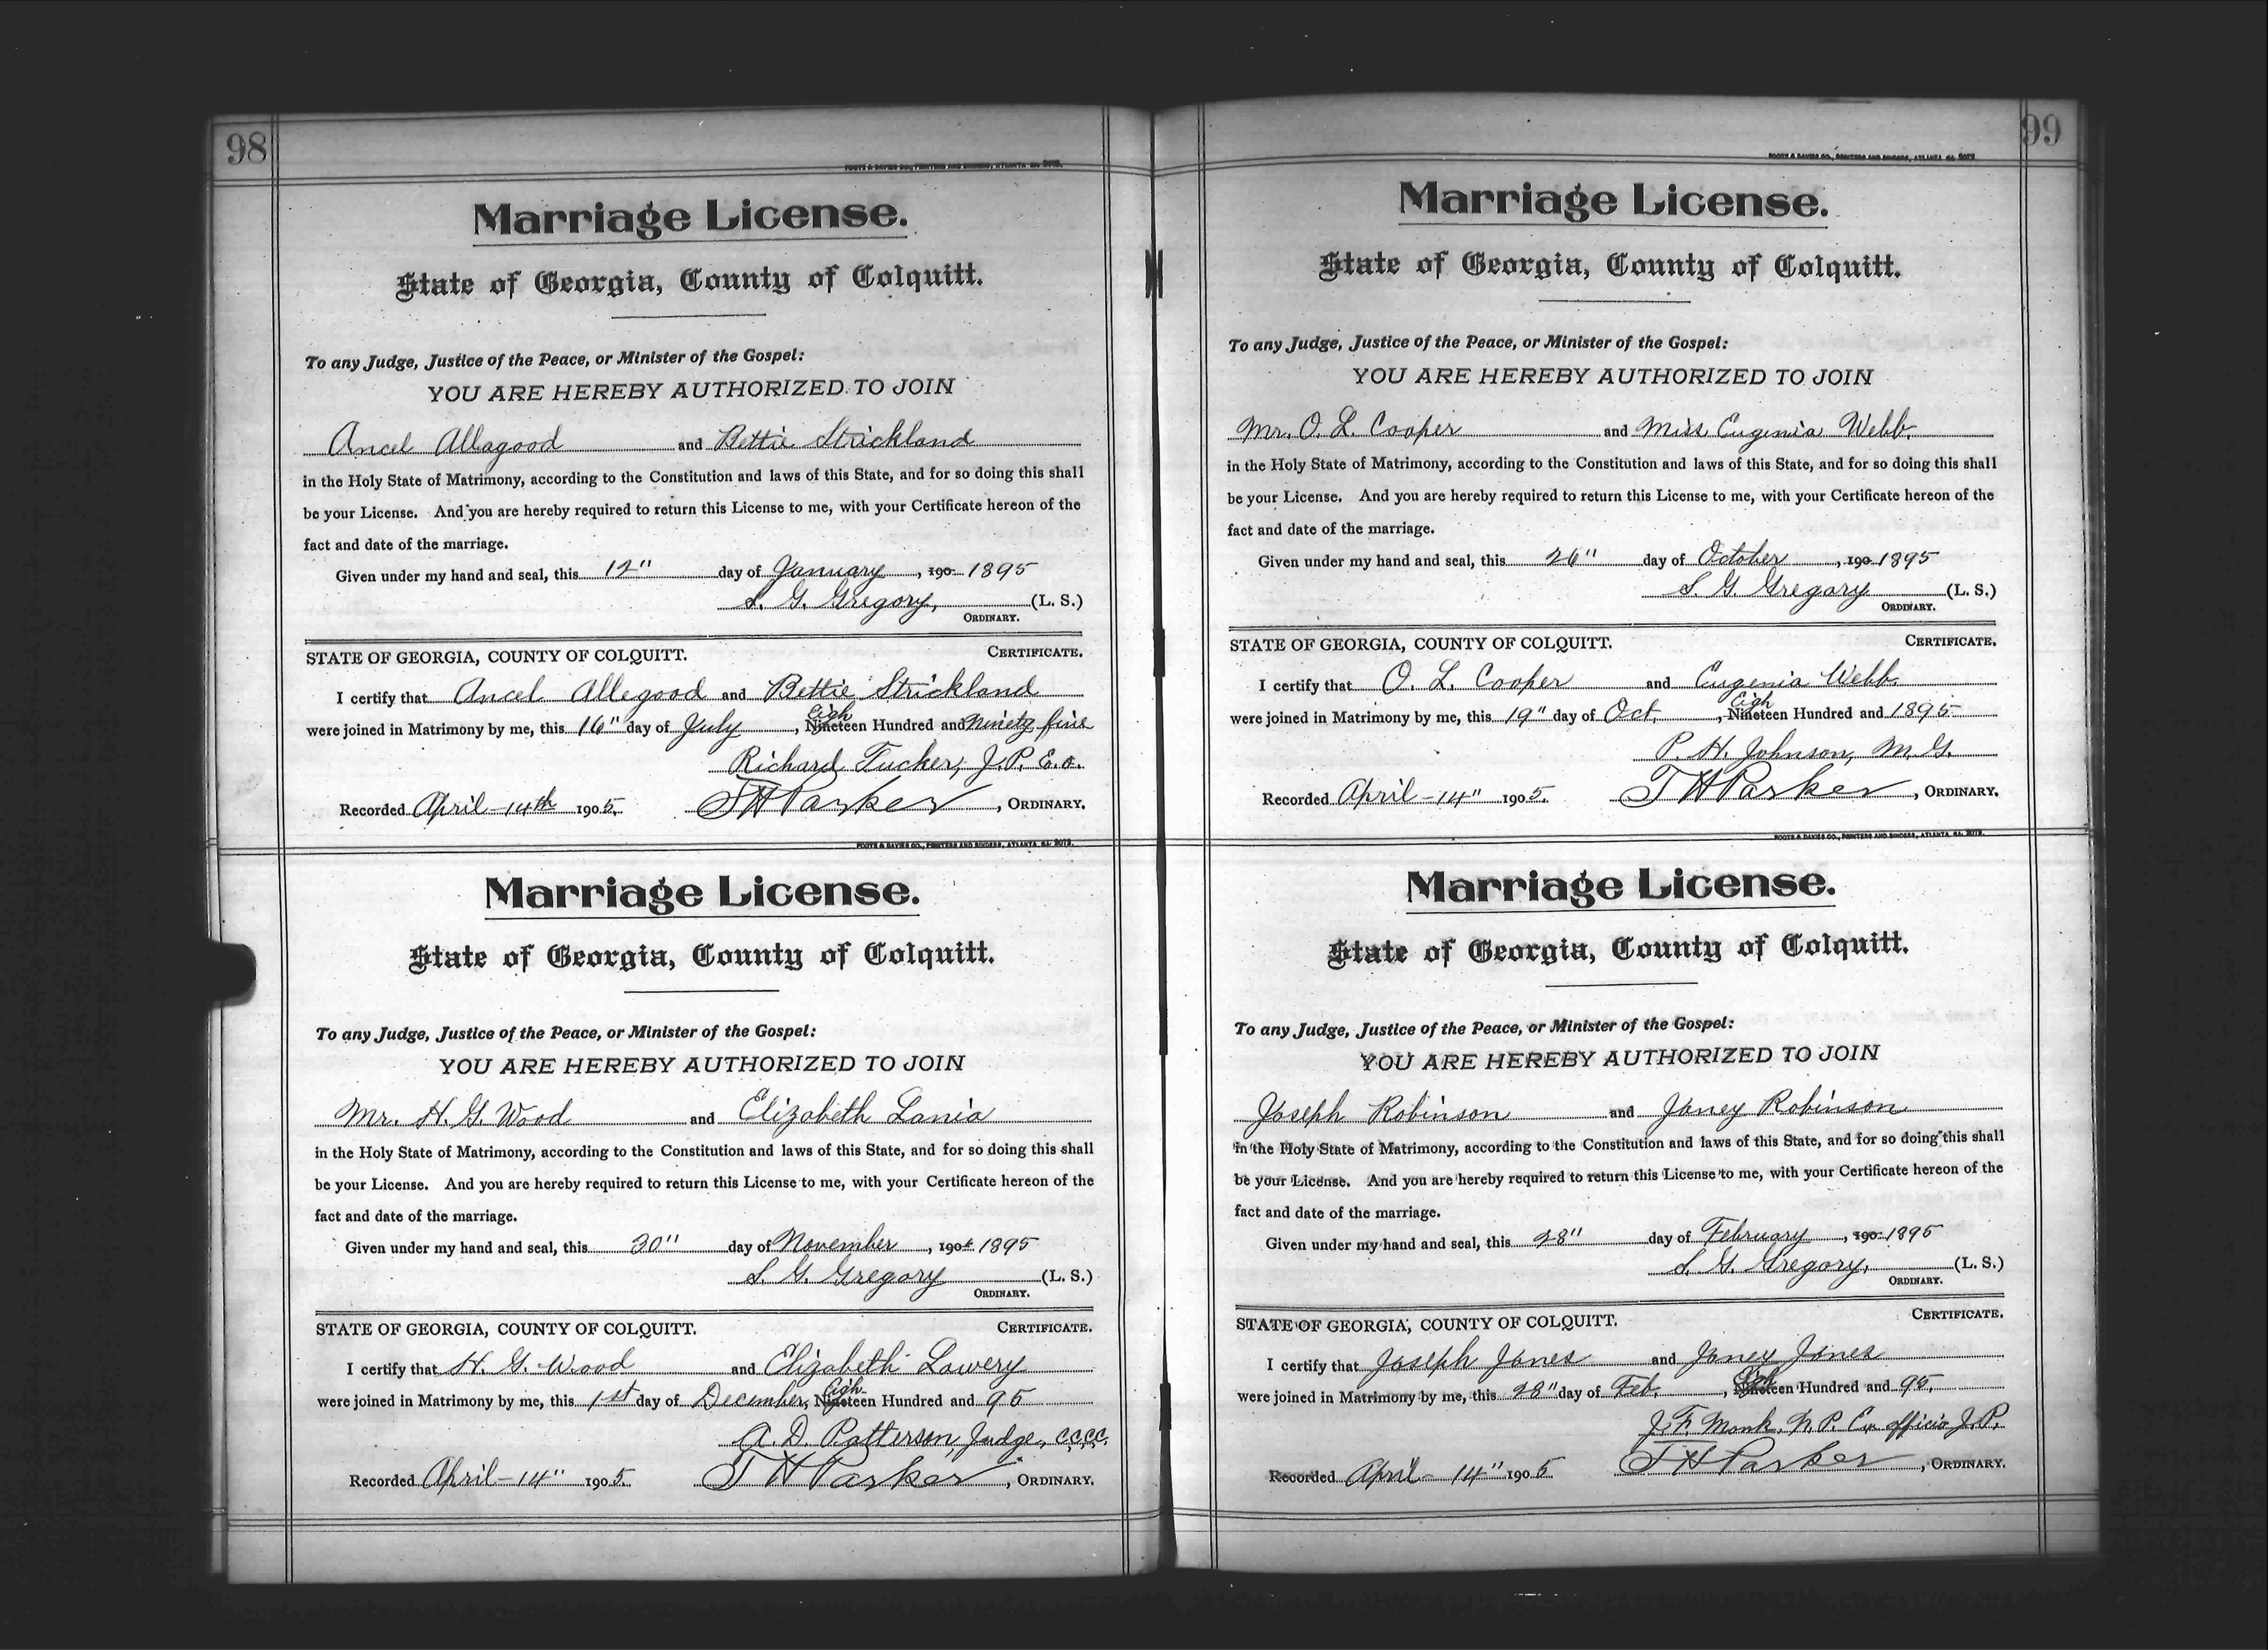 98
FOOTE & DAVIES CO., PRINTERS AND BINDERS, ATLANTA, GA.
Marriage License.
State of Georgia, County of Colquitt.
To any Judge, Justice of the Peace, or Minister of the Gospel:
YOU ARE HEREBY AUTHORIZED TO JOIN
Ancel Allagood and Bettie Strickland
in the Holy State of Matrimony, according to the Constitution and laws of this State, and for so doing this shall
be your License. And you are hereby required to return this License to me, with your Certificate hereon of the
fact and date of the marriage.
Given under my hand and seal, this 12" day of January, 190 1895
S. G. Gregory, (L. S.)
ORDINARY.
STATE OF GEORGIA, COUNTY OF COLQUITT. CERTIFICATE.
I certify that Ancel Allegood and Bettie Strickland
Eigh
were joined in Matrimony by me, this 16" day of July, Nineteen Hundred and Ninety five
Richard Tucker, J.P.
Recorded April - 14th 1905. T H Parker, ORDINARY.
FOOTE & DAVIES CO., PRINTERS AND BINDERS, ATLANTA, GA.
Marriage License.
State of Georgia, County of Colquitt.
To any Judge, Justice of the Peace, or Minister of the Gospel:
YOU ARE HEREBY AUTHORIZED TO JOIN
Mr. H. G. Wood and Elizabeth Lania
in the Holy State of Matrimony, according to the Constitution and laws of this State, and for so doing this shall
be your License. And you are hereby required to return this License to me, with your Certificate hereon of the
fact and date of the marriage.
Given under my hand and seal, this 30" day of November, 190 1895
S. G. Gregory (L. S.)
ORDINARY.
STATE OF GEORGIA, COUNTY OF COLQUITT. CERTIFICATE.
I certify that H. G. Wood and Elizabeth Lowery
Eigh
were joined in Matrimony by me, this 1st day of December, Nineteen Hundred and 95
A. D. Patterson, Judge, C.C.C.C.
Recorded April - 14" 1905. T H Parker, ORDINARY.
99
FOOTE & DAVIES CO., PRINTERS AND BINDERS, ATLANTA, GA.
Marriage License.
State of Georgia, County of Colquitt.
To any Judge, Justice of the Peace, or Minister of the Gospel:
YOU ARE HEREBY AUTHORIZED TO JOIN
Mr. O. L. Cooper and Miss Eugenia Webb.
in the Holy State of Matrimony, according to the Constitution and laws of this State, and for so doing this shall
be your License. And you are hereby required to return this License to me, with your Certificate hereon of the
fact and date of the marriage.
Given under my hand and seal, this 26" day of October, 190 1895
S. G. Gregory (L. S.)
ORDINARY.
STATE OF GEORGIA, COUNTY OF COLQUITT. CERTIFICATE.
I certify that O. L. Cooper and Eugenia Webb.
Eigh
were joined in Matrimony by me, this 19" day of Oct., Nineteen Hundred and 1895
P. H. Johnson, M.G.
Recorded April - 14" 1905. T H Parker, ORDINARY.
FOOTE & DAVIES CO., PRINTERS AND BINDERS, ATLANTA, GA.
Marriage License.
State of Georgia, County of Colquitt.
To any Judge, Justice of the Peace, or Minister of the Gospel:
YOU ARE HEREBY AUTHORIZED TO JOIN
Joseph Robinson and Janey Robinson
in the Holy State of Matrimony, according to the Constitution and laws of this State, and for so doing this shall
be your License. And you are hereby required to return this License to me, with your Certificate hereon of the
fact and date of the marriage.
Given under my hand and seal, this 28" day of February, 190 1895
S. G. Gregory, (L. S.)
ORDINARY.
STATE OF GEORGIA, COUNTY OF COLQUITT. CERTIFICATE.
I certify that Joseph Jones and Janey Jones
Eigh
were joined in Matrimony by me, this 28" day of Feb., Nineteen Hundred and 95.
J. F. Monk, N. P. Ex officio J.P.
Recorded April - 14" 1905 T H Parker, ORDINARY.